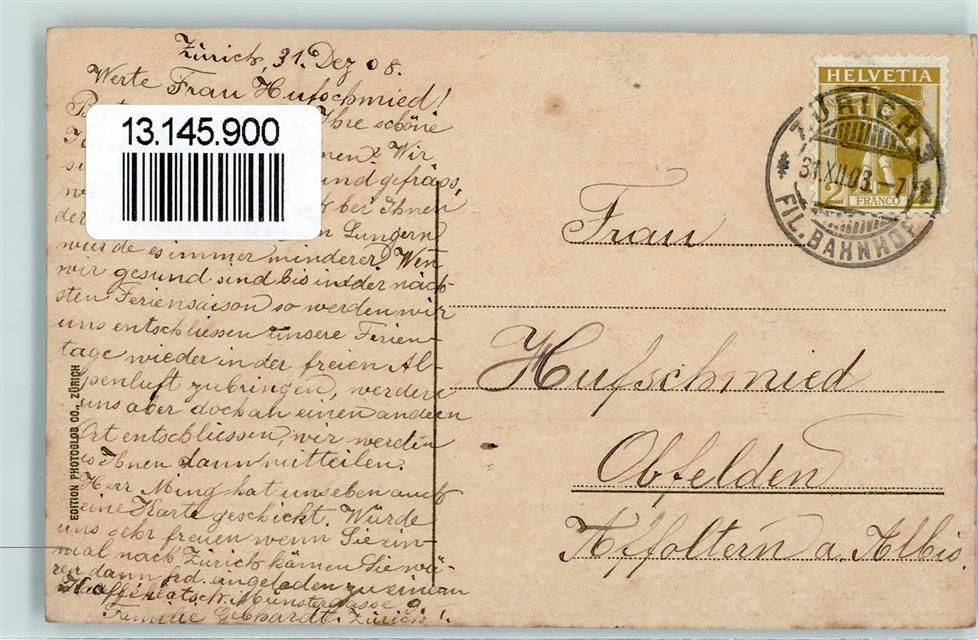 Zürich, 31. Dez 08.
Werte Frau Hufschmied!
Ihre schöne
Wir
und gefragt,
bei Ihnen
Lungern
wurde es immer minderer. Wen
wir gesund sind bis in der näch-
sten Feriensaison so werden wir
uns entschliessen unsere Ferien-
tage wieder in der freien Al-
penluft zubringen, werden
uns aber doch an einen andern
Ort entschliessen, wir werden
es Ihnen dann mitteilen.
Herr Ming hat uns eben auch
eine Karte geschickt. Würde
uns sehr freuen wenn Sie ein-
mal nach Zürich kämen Sie wä-
ren dann frd. eingeladen zu einem
Kaffeklatsch. Münstergasse 9
Familie Gebhardt. Zürich 1.
13.145.900
EDITION PHOTOGLOB CO., ZÜRICH
HELVETIA
2
FRANCO
ZÜRICH
31.XII.08.-7
FIL. BAHNHOF
Frau
Hufschmied
Obfelden
Affoltern a. Albis.